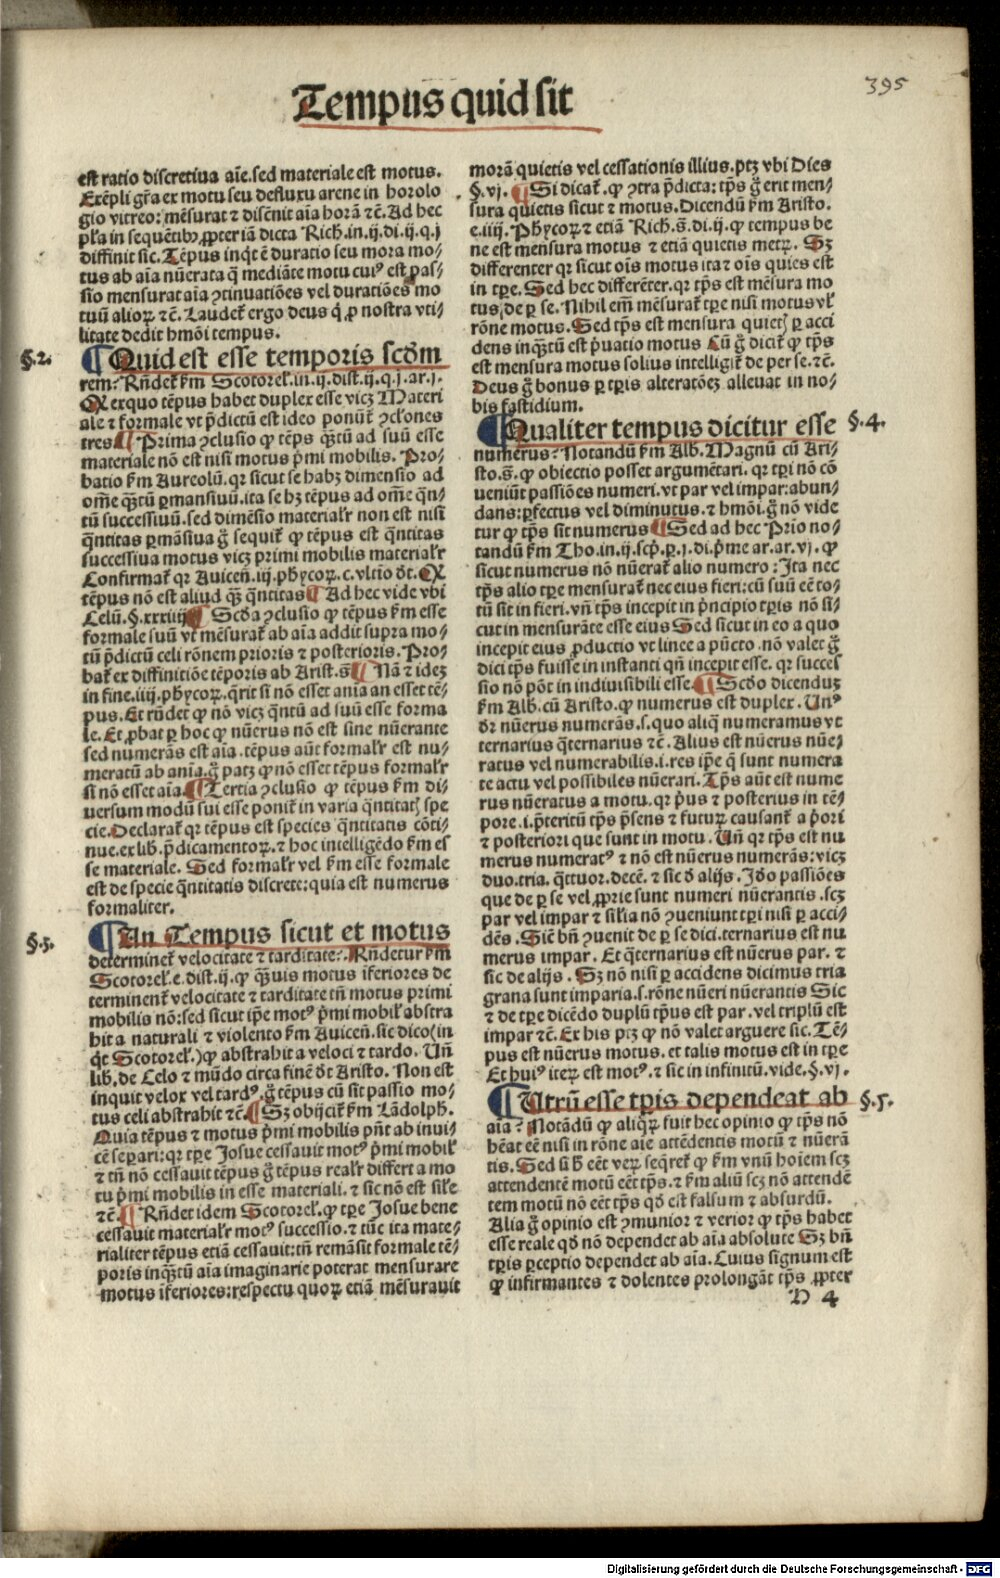 395
Tempus quid sit
est ratio discretiua aīe. sed materiale est motus.
Exēpli gr̄a ex motu seu defluxu arene in horolo
gio vitreo: mēsurat ⁊ discēnit aīa horā ⁊c̄. Ad hec
pl̄a in sequētibꝰ ꝓpter iā dicta Rich. in. ij. di. ij. q. j
diffinit sic. Tēpus inq̄t ē duratio seu mora mo⸗
tus ab aīa nūerata q̄ mediāte motu cuiꝰ est pas⸗
sio mensurat aīa ꝯtinuatiōes vel duratiōes mo
tuū alioꝝ ⁊c̄. Laudet̄ ergo deus q̄ ꝓ nostra vti⸗
litate dedit hmōi tempus.
§.2. ¶ Quid est esse temporis scd̄m
rem? Rn̄det̄ ẜm Scotorel̄. in. ij. dist. ij. q. j. ar. j.
Q ex quo tēpus habet duplex esse vicꝫ Materi
ale ⁊ formale vt p̄dictū est ideo ponūt̄ ꝯcl̄ones
tres ¶ Prima ꝯclusio ꝙ tēps q̄ꝫtū ad suū esse
materiale nō est nisi motus p̄mi mobilis. Pro⸗
batio ẜm Aureolū. qr sicut se habꝫ dimensio ad
om̄e q̄ꝫtū ꝑmansiuū. ita se hꝫ tēpus ad om̄e q̄n⸗
tū successiuū. sed dimēsio material̄r non est nisi
q̄ntitas ꝑmāsiua ḡ sequit̄ ꝙ tēpus est q̄ntitas
successiua motus vicꝫ primi mobilis material̄r
Confirmat̄ qr Auicen̄. iij. phycoꝝ. c. vltīo d̄t. Q
tēpus nō est aliud q̄ꝫ q̄ntitas ¶ Ad hec vide vbi
Celū. §. xxxiiij ¶ Scd̄a ꝯclusio ꝙ tēpus ẜm esse
formale suū vt mēsurat̄ ab aīa addit supra mo⸗
tū p̄dictū celi rōnem prioris ⁊ posterioris. Pro⸗
bat̄ ex diffinitiōe tēporis ab Arist. s̄ ¶ Nā ⁊ ideꝫ
in fine. iiij. phycoꝝ. q̄rit si nō esset anīa an esset tē⸗
pus. Et rn̄det ꝙ nō vicꝫ q̄ntū ad suū esse forma
le. Et ꝓbat ꝑ hoc ꝙ nūerus nō est sine nūerante
sed numerās est aīa. tēpus aūt formal̄r est nu⸗
meratū ab anīa. ḡ patꝫ ꝙ nō esset tēpus formal̄r
si nō esset aīa. ¶ Tertia ꝯclusio ꝙ tēpus ẜm di⸗
uersum modū sui esse ponit̄ in varia q̄ntitatꝭ spe
cie. Declarat̄ qr tēpus est species q̄ntitatis cōti⸗
nue. ex lib. p̄dicamentoꝝ. ⁊ hoc intelligēdo ẜm es
se materiale. Sed formal̄r vel ẜm esse formale
est de specie q̄ntitatis discrete: quia est numerus
formaliter.
§.3. ¶ An Tempus sicut et motus
determinet̄ velocitate ⁊ tarditate? Rn̄detur ẜm
Scotorel̄. e. dist. ij. ꝙ q̄ꝫuis motus īferiores de
terminent̄ velocitate ⁊ tarditate tn̄ motus primi
mobilis nō: sed sicut ip̄e motꝰ p̄mi mobil̄ abstra
hit a naturali ⁊ violento ẜm Auicen̄. sic dico (in
q̄t Scotorel̄.) ꝙ abstrahit a veloci ⁊ tardo. Un̄
lib. de Celo ⁊ mūdo circa finē d̄t Aristo. Non est
inquit velox vel tardꝰ. ḡ tēpus cū sit passio mo⸗
tus celi abstrahit ⁊c̄. ¶ Sꝫ obijcit̄ ẜm Lādolph.
Quia tēpus ⁊ motus p̄mi mobilis pn̄t ab inui⸗
cē separi: qr tꝑe Josue cessauit motꝰ p̄mi mobil̄
⁊ tn̄ nō cessauit tēpus ḡ tēpus real̄r differt a mo
tu p̄mi mobilis in esse materiali. ⁊ sic nō est sil̄e
⁊c̄. ¶ Rn̄det idem Scotorel̄. ꝙ tꝑe Josue bene
cessauit material̄r motꝰ successio. ⁊ tūc ita mate⸗
rialiter tēpus etiā cessauit: tn̄ remāsit formale tē⸗
poris inq̄ꝫtū aīa imaginarie poterat mensurare
motus īferiores: respectu quoꝝ etiā mēsurauit
morā quietis vel cessationis illius. ptꝫ vbi Dies
§. vj. ¶ Si dicat̄. ꝙ ꝯtra p̄dicta: tp̄s ḡ erit men⸗
sura quietis sicut ⁊ motus. Dicendū ẜm Aristo.
e. iiij. Phycoꝝ ⁊ etiā Rich. s̄. di. ij. ꝙ tempus be
ne est mensura motus ⁊ etiā quietis metꝝ. Sꝫ
differenter qr sicut oīs motus ita ⁊ oīs quies est
in tꝑe. Sed hec differēter. qr tp̄s est mēsura mo
tus de ꝑ se. Nihil em̄ mēsurat̄ tꝑe nisi motus vl̄
rōne motus. Sed tp̄s est mensura quietꝭ ꝑ acci
dens inq̄ꝫtū est p̄uatio motus Cū ḡ dicit̄ ꝙ tp̄s
est mensura motus solius intelligit̄ de per se. ⁊c̄.
Deus ḡ bonus ꝑ tꝑis alteratōeꝫ alleuat in no⸗
bis fastidium.
¶ Qualiter tempus dicitur esse §.4.
numerus? Notandū ẜm Alb. Magnū cū Ari⸗
sto. s̄. ꝙ obiectio posset argumētari. qr tꝑi nō cō
ueniūt passiōes numeri. vt par vel impar: abun⸗
dans: ꝑfectus vel diminutus. ⁊ hmōi. ḡ nō vide
tur ꝙ tp̄s sit numerus ¶ Sed ad hec Prio no⸗
tandū ẜm Tho. in. ij. scp̄. ꝑ. j. di. p̄me ar. ar. vj. ꝙ
sicut numerus nō nūerat̄ alio numero: Ita nec
tp̄s alio tꝑe mensurat̄ nec eius fieri: cū suū eē to⸗
tū sit in fieri. vn̄ tp̄s incepit in p̄ncipio tꝑis nō si⸗
cut in mensurāte esse eius Sed sicut in eo a quo
incepit eius ꝓductio vt linee a pūcto. nō valet ḡ
dici tp̄s fuisse in instanti qn̄ incepit esse. qr succes
sio nō pōt in indiuisibili esse. ¶ Scd̄o dicenduꝫ
ẜm Alb. cū Aristo. ꝙ numerus est duplex. Unꝰ
dr̄ nūerus numerās. s. quo aliq̄ numeramus vt
ternarius q̄ternarius ⁊c̄. Alius est nūerus nūe⸗
ratus vel numerabilis. i. res ip̄e q̄ sunt numera
te actu vel possibiles nūerari. Tp̄s aūt est nume
rus nūeratus a motu. qr p̄us ⁊ posterius in tē⸗
pore. i. p̄teritū tp̄s p̄sens ⁊ futuꝝ causant̄ a p̄ori
⁊ posteriori que sunt in motu. Un̄ qr tp̄s est nu
merus numeratꝰ ⁊ nō est nūerus numerās: vicꝫ
duo. tria. q̄ttuor. decē. ⁊ sic d̄ alijs. Jd̄o passiōes
que de ꝑ se vel ꝓprie sunt numeri nūerantis. scꝫ
par vel impar ⁊ sil̄ia nō ꝯueniunt tꝑi nisi ꝑ acci⸗
dēs. Sic̄ bn̄ ꝯuenit de ꝑ se dici. ternarius est nu
merus impar. Et q̄ternarius est nūerus par. ⁊
sic de alijs. Sꝫ nō nisi ꝑ accidens dicimus tria
grana sunt imparia. s. rōne nūeri nūerantis Sic
⁊ de tꝑe dicēdo duplū tp̄us est par. vel triplū est
impar ⁊c̄. Et his ptꝫ ꝙ nō valet arguere sic. Tē⸗
pus est nūerus motus. et talis motus est in tꝑe
Et huiꝰ iteꝝ est motꝰ. ⁊ sic in infinitū. vide. §. vj.
¶ Utrū esse tꝑis dependeat ab §.5.
aīa? Notādū ꝙ aliqꝝ fuit hec opinio ꝙ tp̄s nō
hēat eē nisi in rōne aīe attēdentis motū ⁊ nūerā
tis. Sed si h̄ eēt veꝝ seq̄ret̄ ꝙ ẜm vnū hoīem scꝫ
attendentē motū eēt tp̄s. ⁊ ẜm aliū scꝫ nō attendē
tem motū nō eēt tp̄s qd̄ est falsum ⁊ absurdū.
Alia ḡ opinio est ꝯmunior ⁊ verior ꝙ tp̄s habet
esse reale qd̄ nō dependet ab aīa absolute Sꝫ bn̄
tꝑis ꝑceptio dependet ab aīa. Cuius signum est
ꝙ infirmantes ⁊ dolentes prolongāt tp̄s ꝓpter
D 4
Digitalisierung gefördert durch die Deutsche Forschungsgemeinschaft - DFG